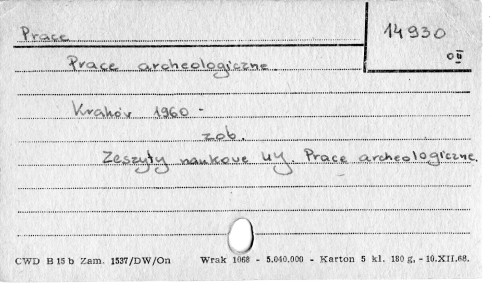 Prace
14930
Prace archeologiczne.
Kraków 1960 -
zob.
Zeszyty naukowe UJ. Prace archeologiczne.
CWD B 15 b Zam. 1537/DW/On Wrak 1068 - 5.040.000 - Karton 5 kl. 180 g. - 10.XII.68.